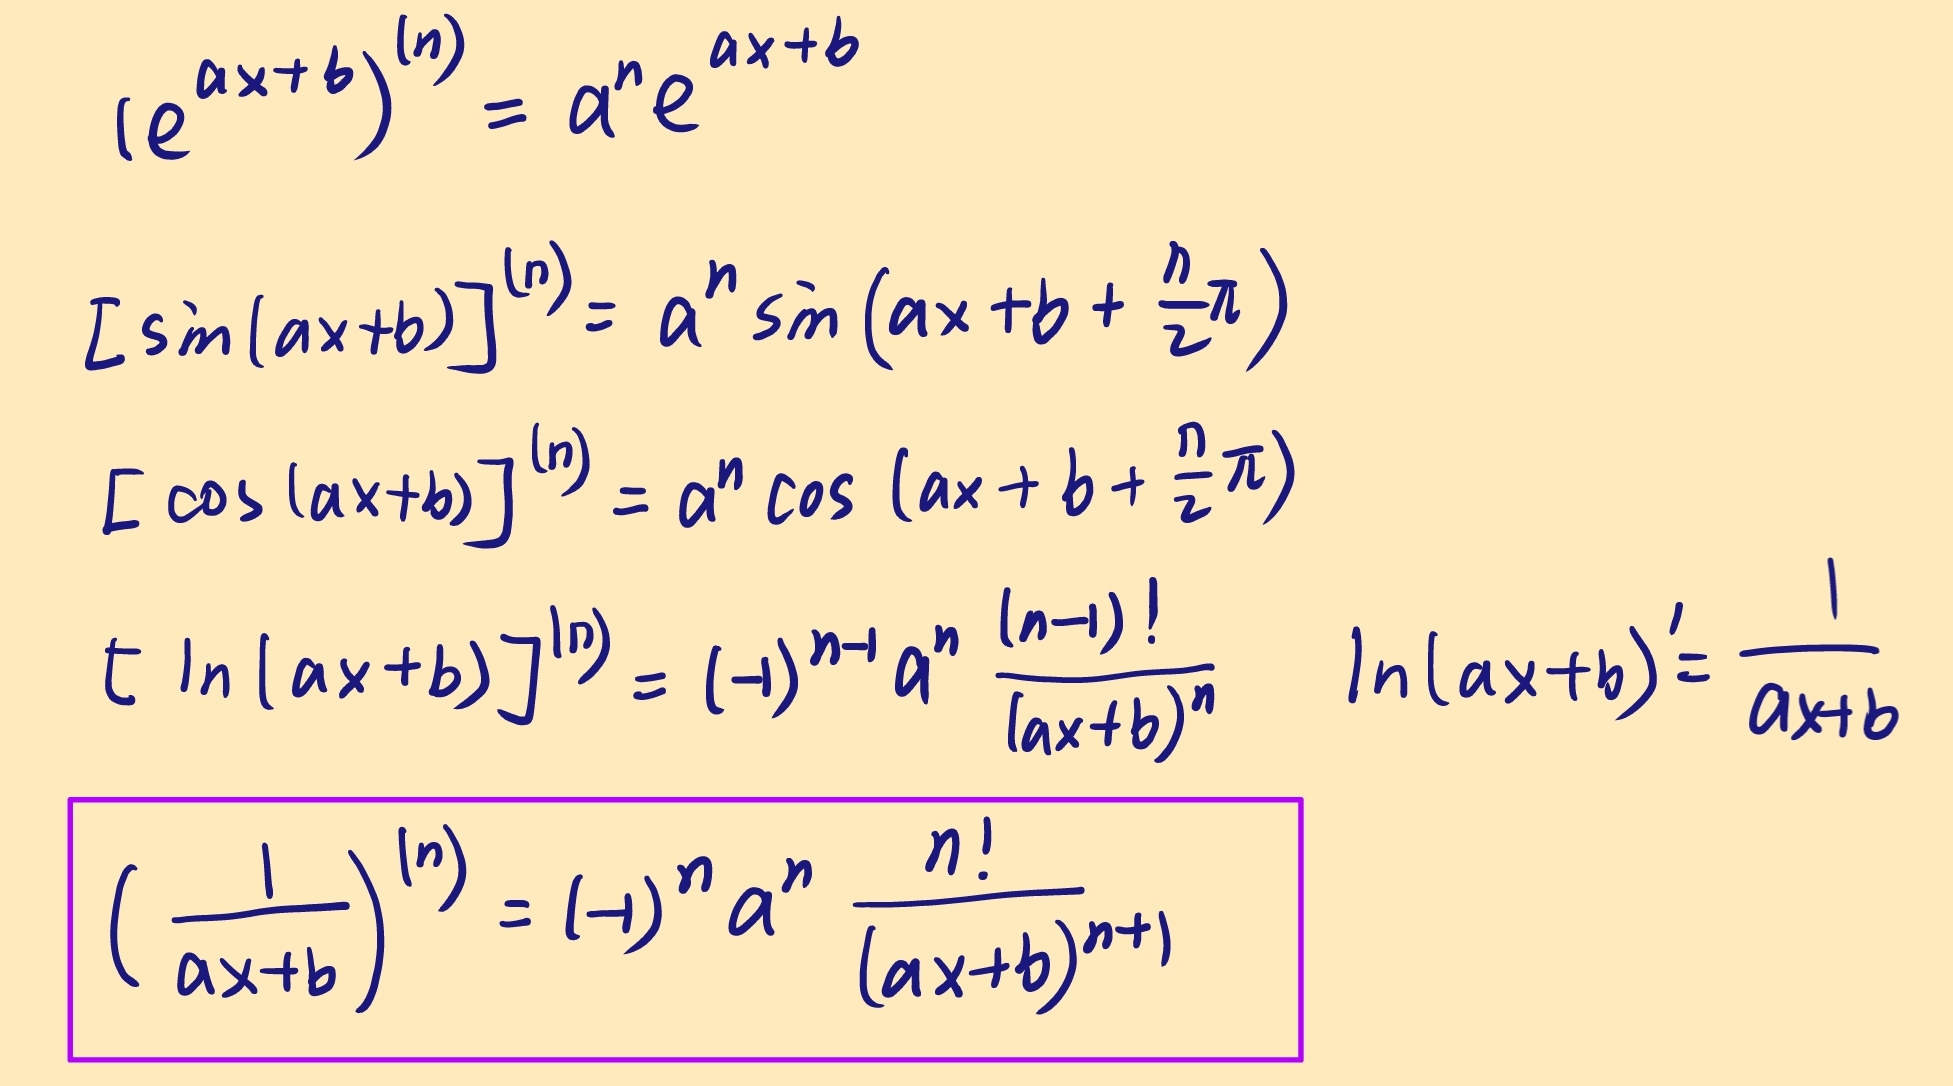 (e^{ax+b})^{(n)} = a^n e^{ax+b}
[sin(ax+b)]^{(n)} = a^n sin(ax+b+\frac{n}{2}π)
[cos(ax+b)]^{(n)} = a^n cos(ax+b+\frac{n}{2}π)
[ln(ax+b)]^{(n)} = (-1)^{n-1} a^n \frac{(n-1)!}{(ax+b)^n} ln(ax+b)' = \frac{1}{ax+b}
(\frac{1}{ax+b})^{(n)} = (-1)^n a^n \frac{n!}{(ax+b)^{n+1}}